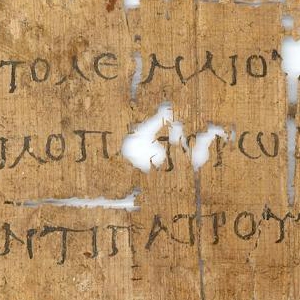 ΤΟΛΕΜΑΙΟΥ
ΛΟΠ ΡΩ
ΝΤΙΠΑΤΡΟΥ